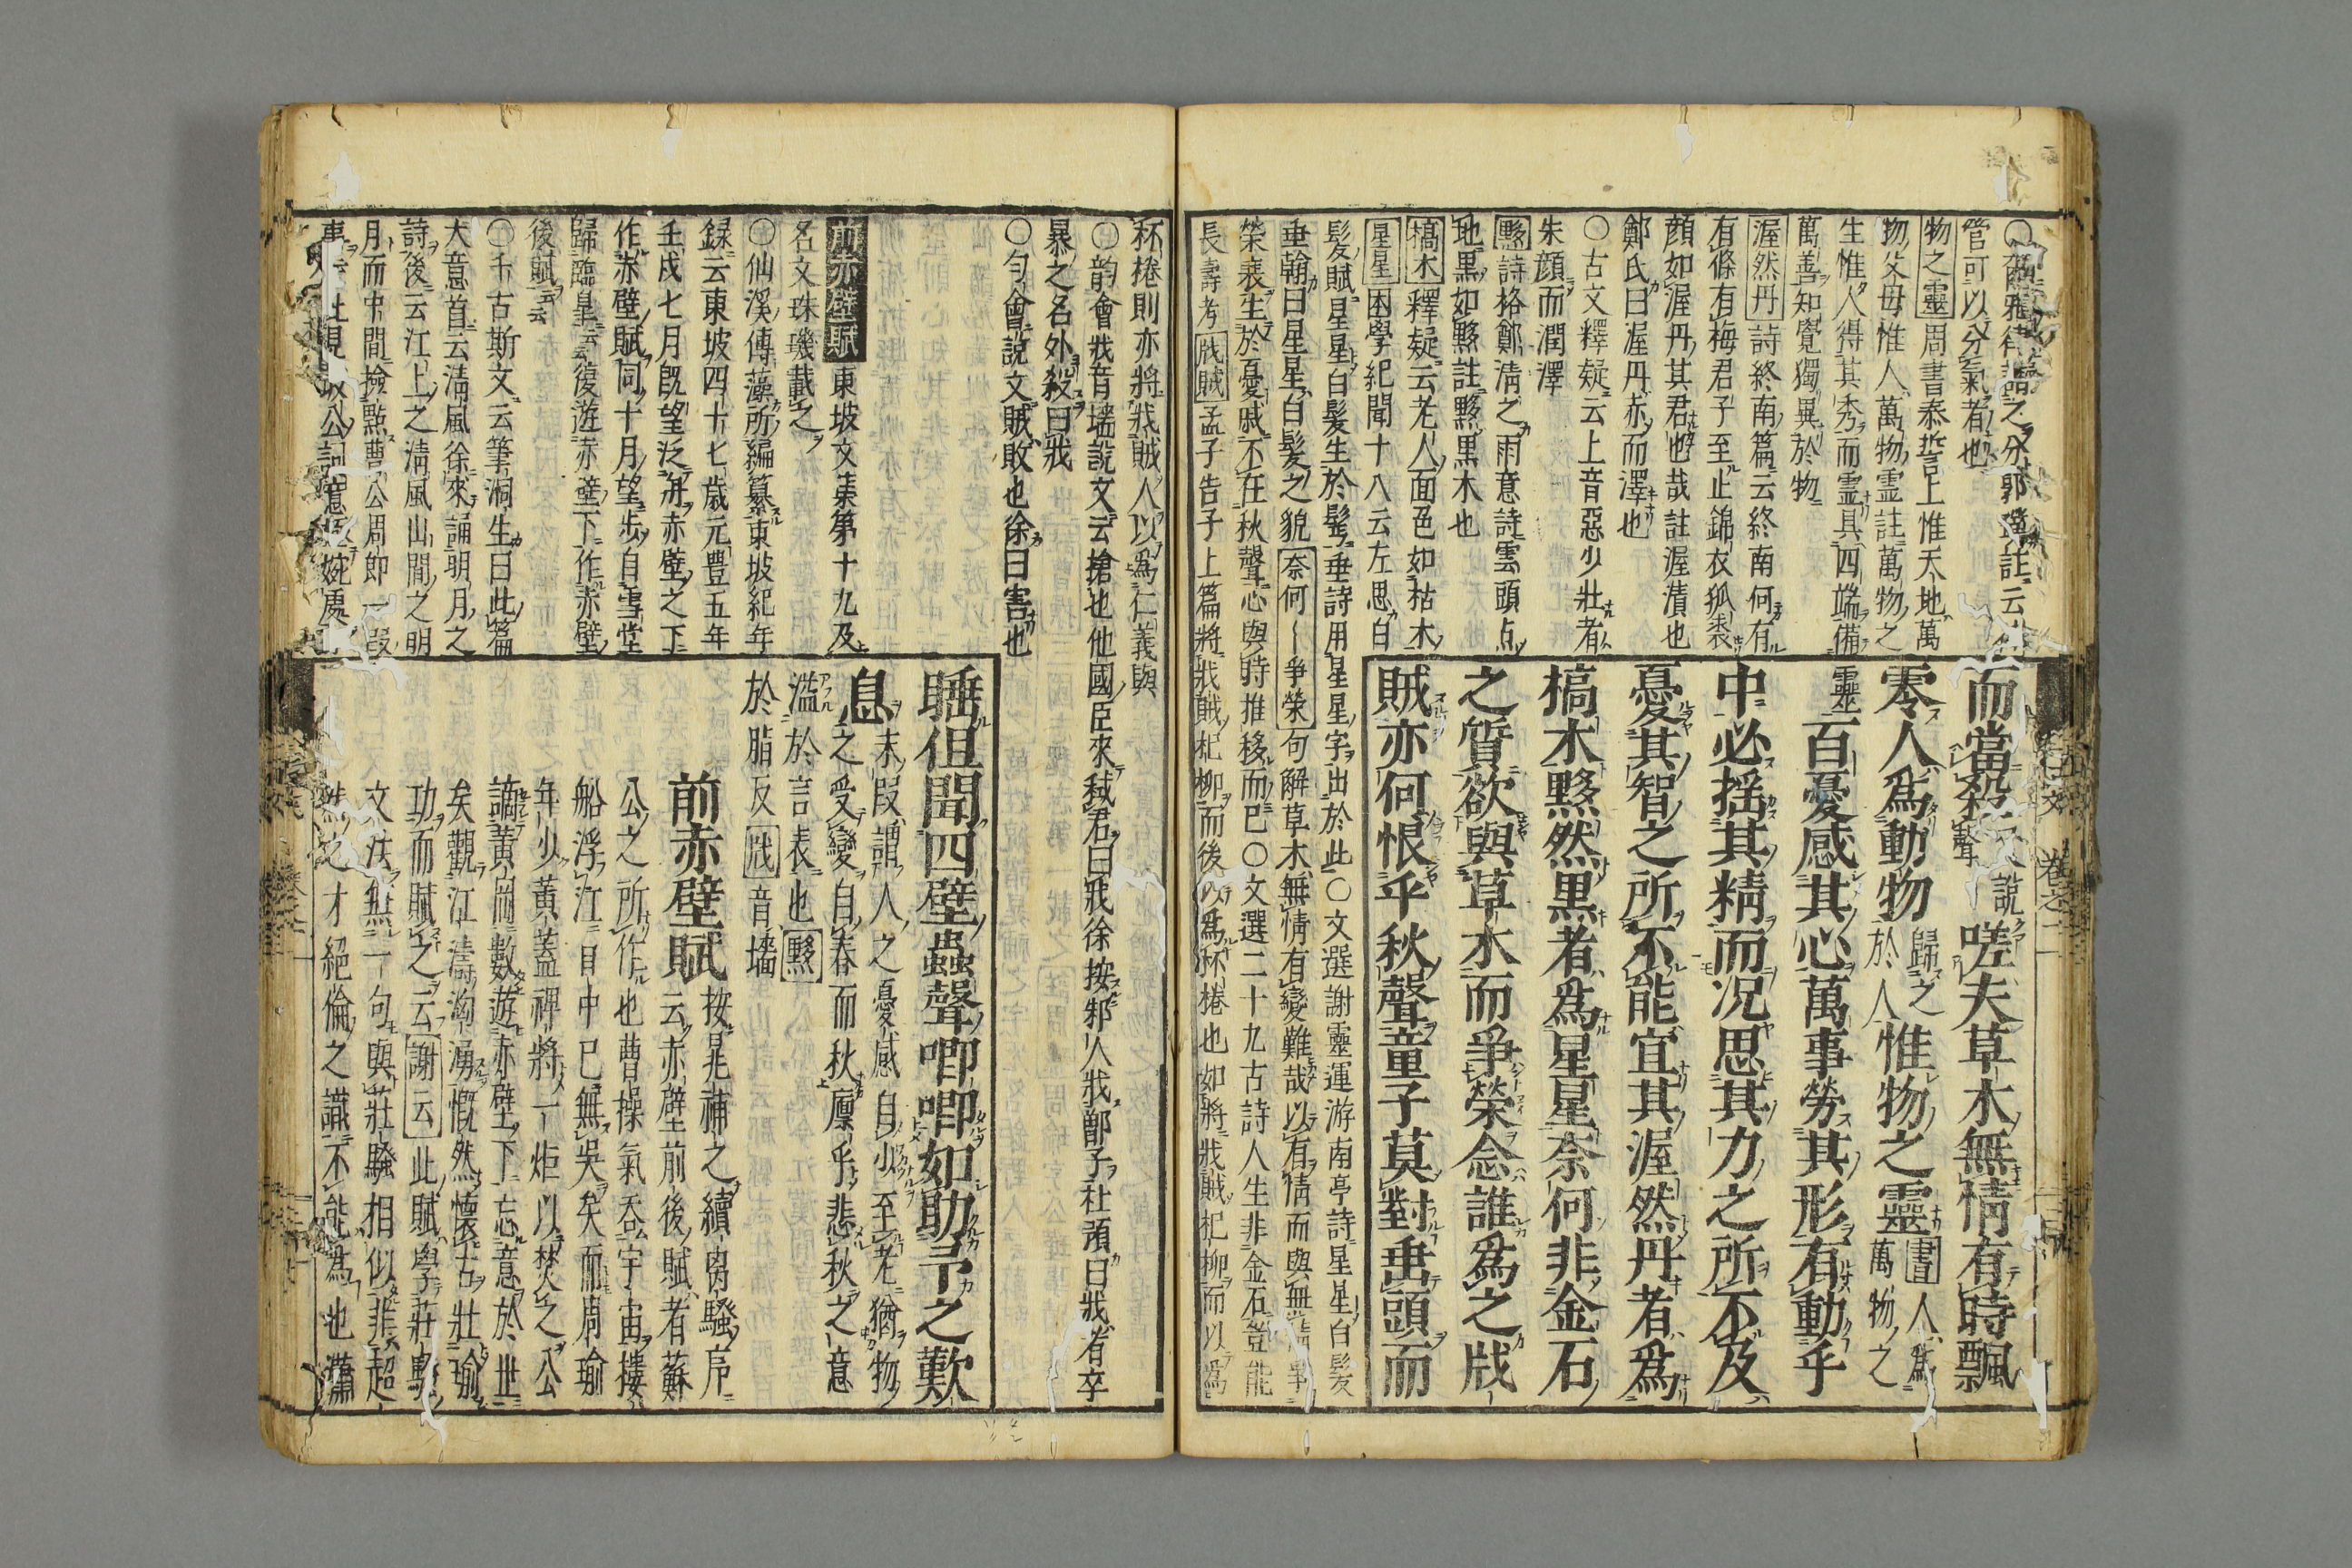 管可以分氣者也
物之靈周書泰誓上惟天地萬
物父母惟人萬物霊註萬物之
生惟人得其秀而霊具四端備
萬善知覺獨異於物
渥然丹詩終南篇云終南何有
有條有梅君子至止錦衣狐裘
顔如渥丹其君也哉註渥漬也
鄭氏曰渥丹赤而澤也
〇古文釋疑云上音惡少壯者
朱顔而潤澤
黟詩格鄭淸之雨意詩雲頭点
地黒如黟註黟黒木也
槁木釋疑云老人面色如枯木
星星困學紀聞十八云左思白
髪賦星星白髪生於鬢垂詩用星星字出於此〇文選謝靈運游南亭詩星星白髪
垂翰曰星星白髪之貌奈何〜爭榮句解草木無情有變難哉以有情而與無情爭
榮衰生於憂慼不在秋聲心與時推移而巳〇文選二十九古詩人生非金石豈能
長壽考戕賊孟子告子上篇將戕賊杞柳而後以爲杯棬也如將戕賊杞柳而以爲
而當殺聲說嗟夫草木無情有時飄
零人爲動物歸之於人惟物之靈書人爲萬物之
靈百憂感其心萬事勞其形有動乎
中必揺其精而況思其力之所不及
憂其智之所不能宜其渥然丹者爲
槁木黟然黒者爲星星奈何非金石
之質欲與草木而爭榮念誰爲之戕
賊亦何恨乎秋聲童子莫對垂頭而
杯棬則亦將戕賊人以爲仁義與
〇韵會戕音墻說文云搶也他國臣來弑君曰戕徐按邾人戕鄫子杜預曰戕者卒
暴之名外殺曰戕
〇勻會說文賊敗也徐曰害也
前赤壁賦東坡文集第十九及
名文珠璣載之
〇仙溪傅藻所編纂東坡紀年
録云東坡四十七歳元豐五年
壬戌七月既望泛舟赤壁之下
作赤壁賦同十月望歩自雪堂
歸臨皐云云復遊赤壁下作赤壁
後賦云云
〇千古斯文云筆洞生曰此篇
大意首云淸風徐來誦明月之
詩後云江上之淸風山間之明
月而中間撿點曹公周郎一段
睡但聞四壁蟲聲喞喞如助予之歎
息末段謂人之憂感自少至老猶物
之受變自春而秋凜乎悲秋之意
溢於言表也黟
於脂反戕音墻
前赤壁賦按晁補之續离騷序
云赤壁前後賦者蘇
公之所作也曹操氣呑宇宙樓
船浮江目中已無吳矣而周瑜
年少黄蓋裨將一炬以焚之公
謫黄岡數遊赤壁下忘意於世
矣觀江濤洶湧慨然懷古壯瑜
功而賦之云謝云此賦學莊騷
文法無一句與莊騷相似非超
然之才絕倫之識不能爲也瀟